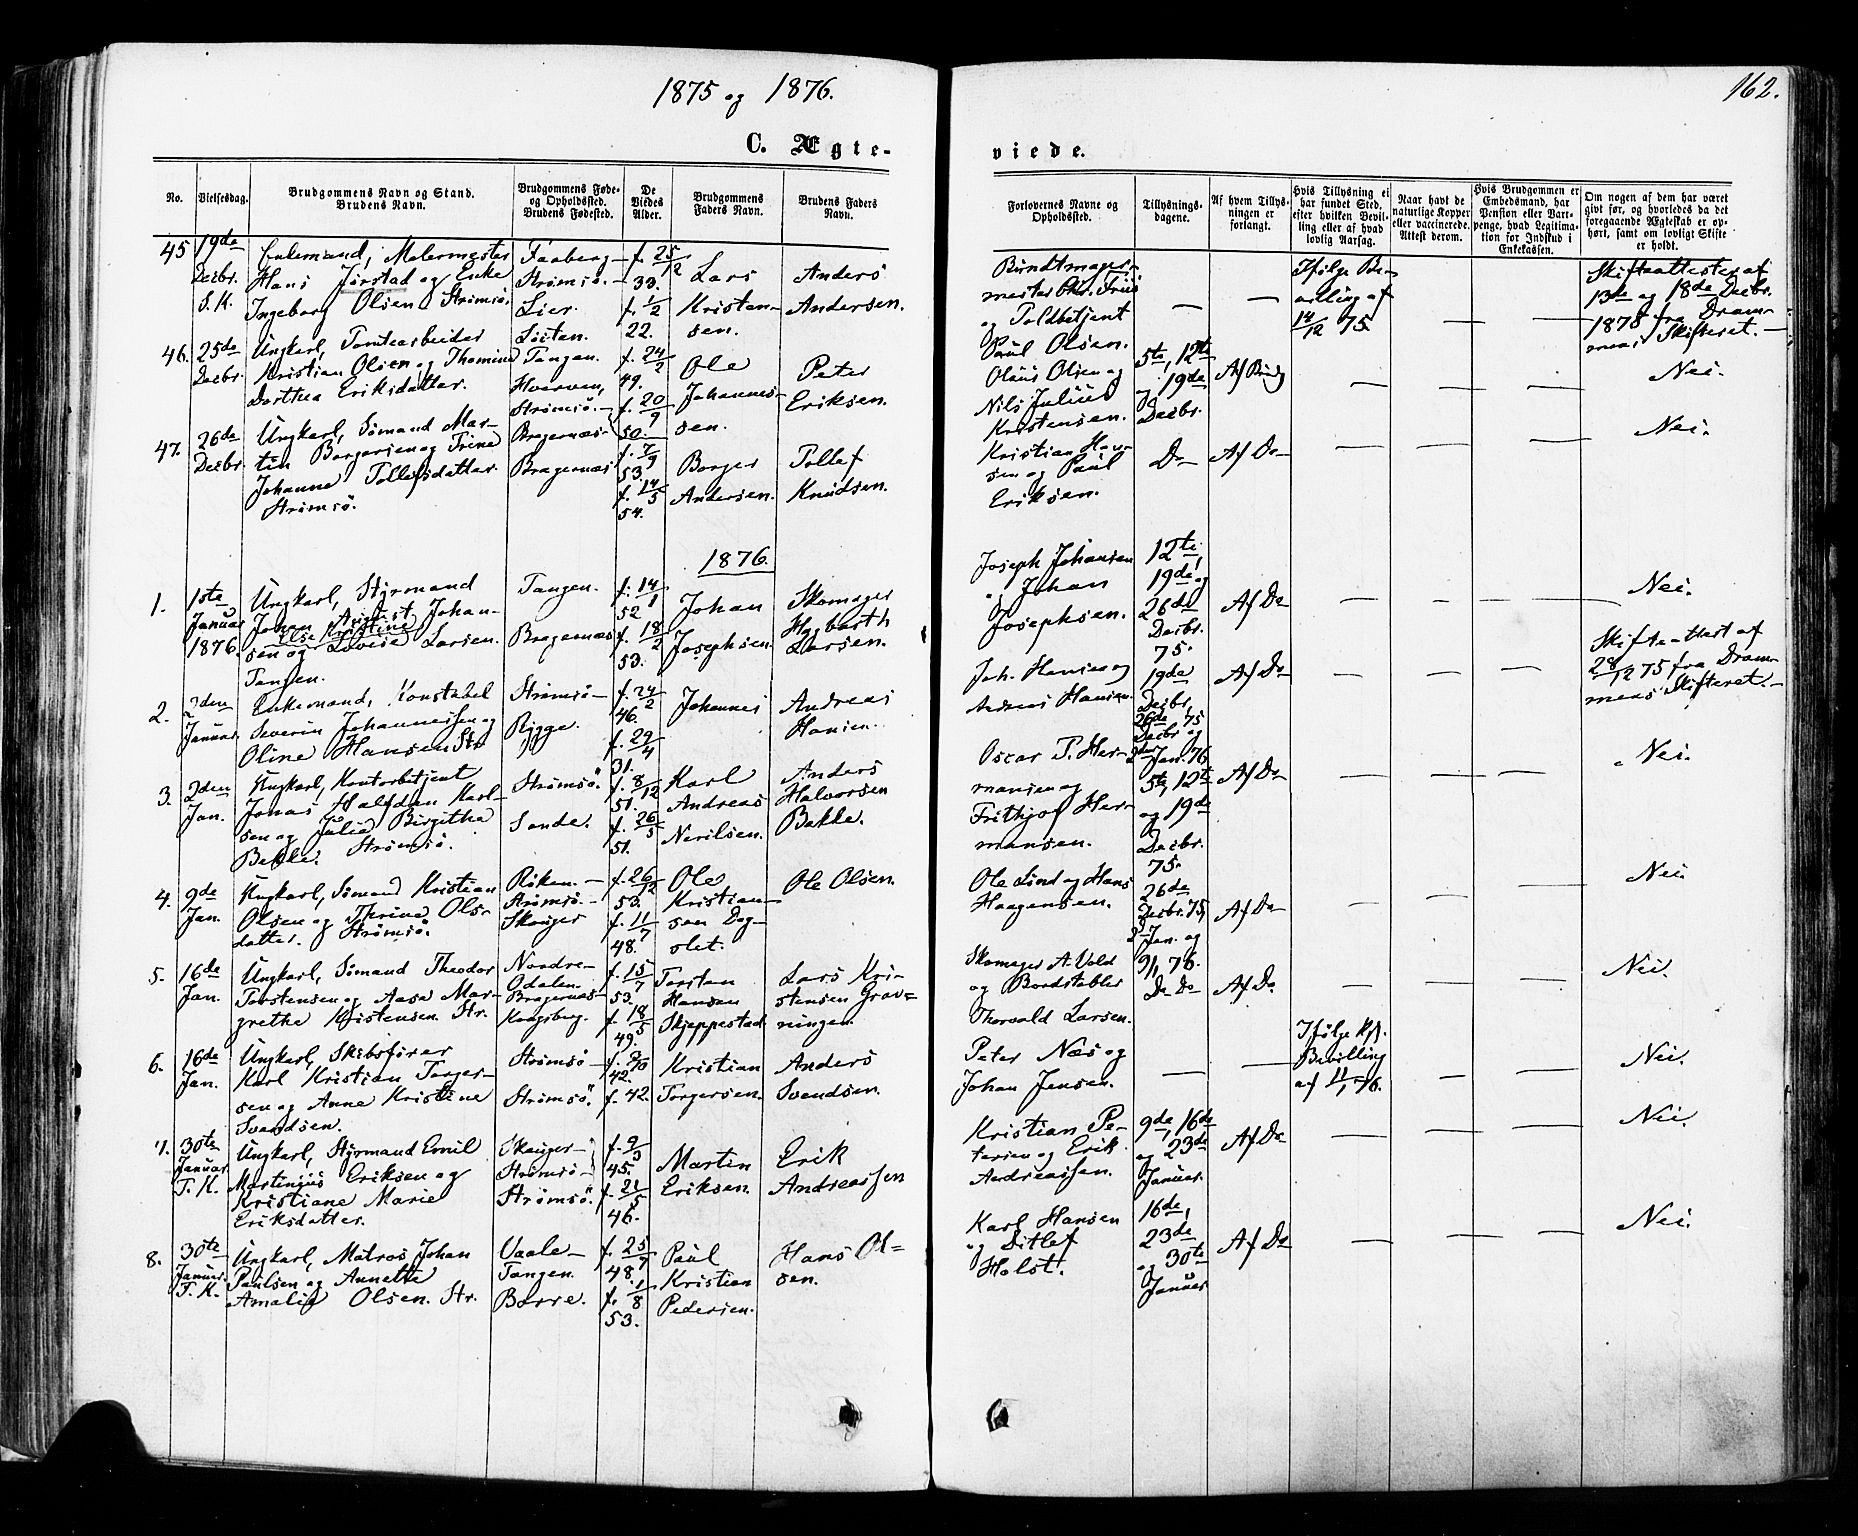 1875 og 1876.
162.
C. Ægte-
viede.
No.
Vielsesdag.
Brudgommens Navn og Stand.
Brudens Navn.
Brudgommens Føde-
og Opholdssted.
Brudens Fødested.
De
Viedes
Alder.
Brudgommens
Faders Navn.
Brudens Faders
Navn.
Forlovernes Navne og
Opholdssted.
Tillysnings-
dagene.
Af hvem Tillys-
ningen er
forlangt.
Hvis Tillysning ei
har fundet Sted,
efter hvilken Bevil-
ling eller af hvad
lovlig Aarsag.
Naar havt de
naturlige Kopper
eller vaccinerede.
Attest derom.
Hvis Brudgommen er
Embedsmand, har
Pension eller Vart-
penge, hvad Legitima-
tion for Indskud i
Enkekassen.
Om nogen af dem har været
givt før, og hvorledes da det
foregaaende Ægteskab er op-
hørt, samt om lovligt Skifte
er holdt.
45
19de
Decbr.
S. K.
Enkemand, Malermester
Hans Jørstad og Enke
Ingeborg Olsen Strømsø
Faaberg-
Strømsø.-
Lier.
f. 25/12
33.
f. 1/2
22.
Lars
Kristen-
sen.
Anders
Andersen.
Bundtmager-
mester Chr. Friis
og Toldbetjent
Paul Olsen.
—
—
Ifølge Be-
villing af
14/12 75.
—
—
Skifteattester af
13de og 18de Decbr.
1875 fra Dram-
mens Skifteret.—
46.
25de
Decbr.
Ungkarl, Tomtearbeider
Kristian Olsen og Thomine
Dorthea Eriksdatter.
Løiten.
Tangen.
Hverven,
Strømsø.-
f. 24/2
49.
f. 20/9
50.
Ole
Johannes-
sen.
Peter
Eriksen.
Olaus Olsen og
Nils Julius
Kristensen.
5te, 12te
og 19de
Decbr.
Af Brudg
—
—
—
Nei.
47.
26de
Decbr.
Ungkarl, Sømand Mar-
tin Borgersen og Trine
Johanne Tollefsdatter
Strømsø.
Bragernæs-
Bragernæs
f. 7/9
53.
f. 14/5
54.
Borger
Andersen.
Tollef
Knudsen.
Kristian Han-
sen og Paul
Eriksen.
Do
Af Do
—
—
—
Nei.
1876.
1.
1ste
Januar
1876.
Ungkarl, Styrmand
Johan August Johan-
Else Kristine
sen og Lovise Larsen.
Tangen.
Tangen.
Bragernæs
f. 14/1
52
f. 18/2
53.
Johan
Josephsen.
Skomager
Hagbarth
Larsen.
Joseph Johansen
og Johan
Josephsen.
12te,
19de og
26de
Decbr.
75.
Af Do
—
—
—
—
Nei.
2.
2den
Januar
Enkemand, Konstabel
Severin Johannessen og
Oline Hansen Str
Strømsø-
Rygge.
f. 24/2
46.
f. 29/4
31.
Johannes
Andreas
Hansen.
Joh. Hansen og
Andreas Hansen.
19de
Decbr,
26de 75
Decbr og
2den Jan. 76
Af Do
—
—
—
Skifteattest af
28/12 75 fra Dram-
mens Skifteret.—
3.
2den
Jan.
Ungkarl, Kontorbetjent
Jonas Halfdan Karl-
sen og Julie Birgitha
Bakke. Strømsø.
Strømsø.
Sande.
f. 8/12
51.
f. 26/5
51.
Karl
Andreas
Nerilsen.
Anders
Halvorsen
Bakke.
Oscar P. Her-
mansen og
Frithjof Her-
mansen.
5te, 12te
og 19de
Decbr.
75.
Af Do
—
—
—
Nei.
4.
9de
Jan.
Ungkarl, Sømand Kristian
Olsen og Thrine Ols-
datter. Strømsø.
Røken.-
Strømsø.-
Skauger
f. 26/12
53.
f. 11/7
48.
Ole
Kristian-
sen Døg-
slet.
Ole Olsen.
Ole Lind og Hans
Haagensen.
26de
Decbr. 75,
2 Jan. og
9/1 76.
Af Do
—
—
—
Nei.
5.
16de
Jan.
Ungkarl, Sømand Theodor
Torstensen og Aasa Mar-
grethe Kristensen. Str.
Nordre-
Odalen.
Bragernæs-
Kongsberg.
f. 15/7
53.
f. 18/5
49.
Torsten
Hansen
Skjeppestad
Lars Kri-
stensen Grav-
ningen.
Skomager A. Vold
og Bordstabler
Thorvald Larsen.
Do Do
Af Do
—
—
—
Nei.
6.
16de
Jan.
Ungkarl, Skibsfører
Karl Kristian Torger-
sen og Anne Kristine
Svendsen.
Strømsø-
Strømsø.
42.
f. 42.
Kristian
Torgersen.
Anders
Svendsen.
Peter Næs og
Johan Jensen.
—
—
Ifølge Kgl.
Bevilling
af 11/1 76.
—
—
Nei.
7.
30te
Januar
T. K.
Ungkarl, Styrmand Emil
Martinius Eriksen og
Kristiane Marie
Eriksdatter.
Skauger-
Strømsø-
Strømsø.
f. 9/3
45.
f. 21/5
46.
Martin
Eriksen.
Erik
Andreassen
Kristian Pe-
tersen og Erik
Andreassen.
9de, 16de
og 23de
Januar.
Af Do
—
—
—
Nei.
8.
30te
Januar
T. K.
Ungkarl, Matros Johan
Paulsen og Annette
Amalie Olsen. Str.
Vaale-
Tangen.
Borre.
f. 25/7
48.
f. 1/8
53.
Paul
Kristian
Pedersen.
Hans Ol-
sen.
Karl Hansen
og Ditlef
Holst.
16de,
23de
og 30te
Januar
Af Do
—
—
—
Nei.